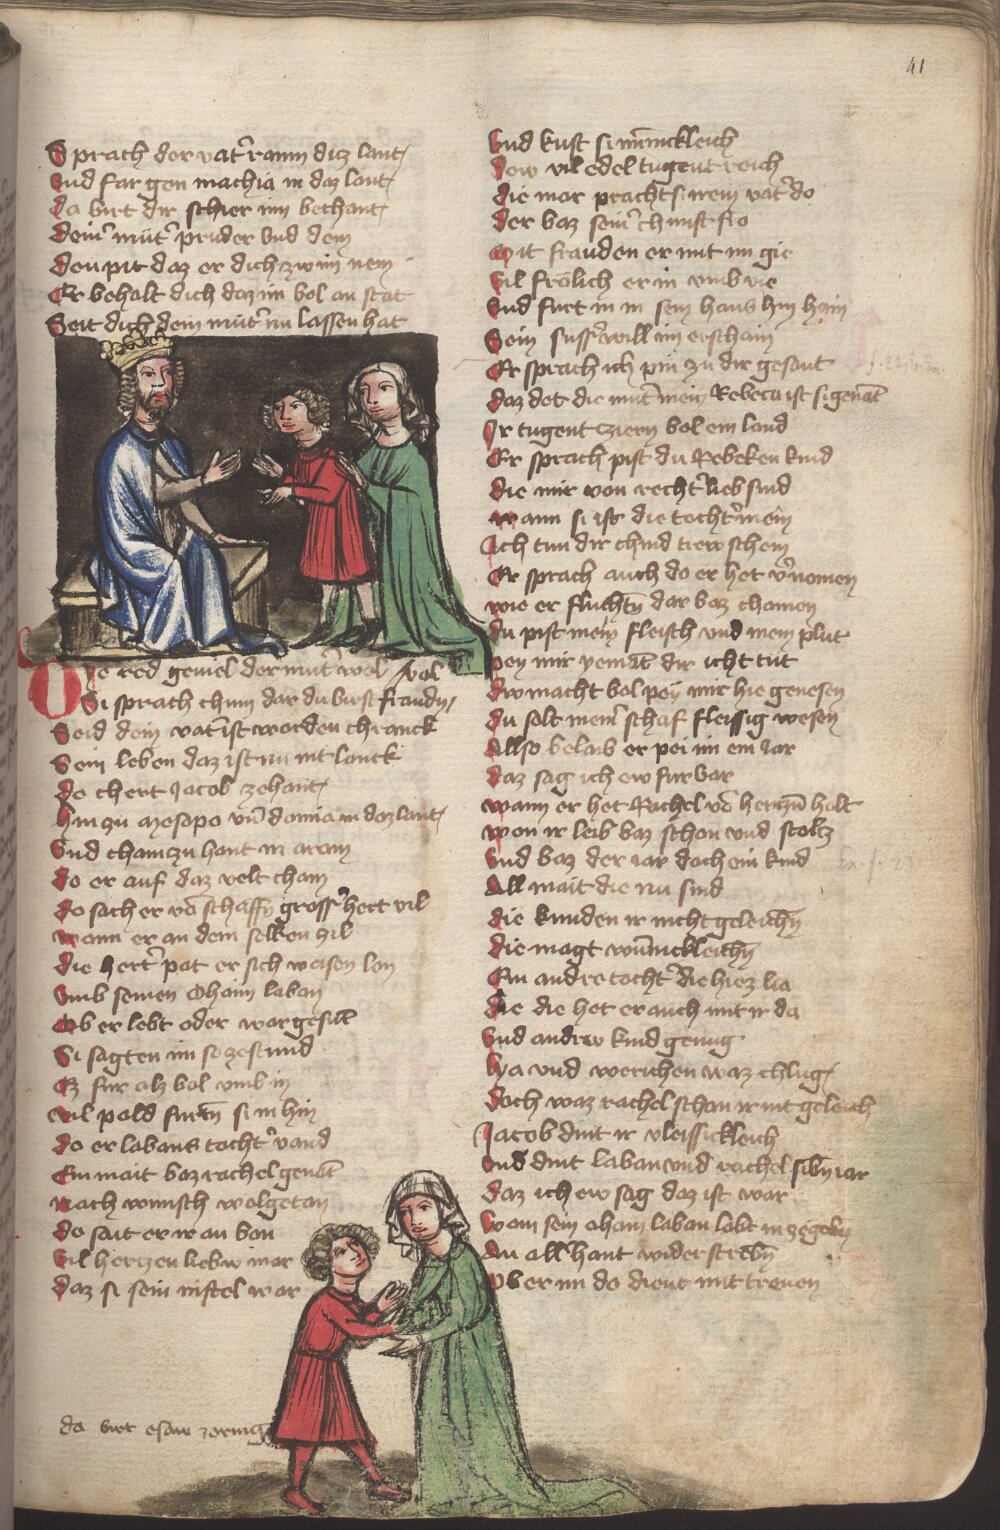 41
Sprach der vat̾ raum ditz lant
Vnd far gen machia in daz lant
Da birt dir schier im bechant
Dein̾ mut̾ pruder vnd dem
Den pit daz er dich zw im nem
Er behalt dich daz im bol an stat
Seit dich dein mut̾ nu lassen hat
Die red geuiel der mut̾ wol
Si sprach chum dar du birst fraudn
Seid dein vat̾ ist worden chranck
Sein leben daz ist nu nit lanck
Do chert Jacob zehant
Hin zu mesopo vn̄ domia in daz lant
Vnd cham zu hant in aram
Do er auf daz velt cham
Do sach er vō schaffn̄ gross̾ hert vil
Wann er an dem selben zil
Die hert̾ pat er sich weisen lan
Vmb seinen Oham laban
Ob er lebt oder war gesūt
Si sagten im so zestund
Ez fur alz bol vmb in
Vil pald furtn̄ si in hin
Do er labans tocht̾ vand
Ein mait baz rachel genāt
Nach wunsch wolgetan
Do sait er ir an ban
Vil hertzen liebew mar
Daz si sein niftel war
da birt esaw zornig
Vnd kust si minnickleich
Dew vil edel tugent reich
Die mar pracht si irem vat̾ do
Der baz sein̾ chunft fro
Mit frauden er mit im gie
Vil frölich er in vmb vie
Vnd furt in in sein haus hin haim
Sein suss̾ will im erschain
Er sprach ich pin zu dir gesant
Daz det die mut̾ mein Rebeca ist si genāt
Ir tugent ziern bol ein land
Er sprach pist du Rebeken kind
Die mir von recht̾ lieb sind
Wann si ist die tocht̾ mein
Ich tun dir chind trew schein
Er sprach auch do er het v̾nomen
Wie er fluchtn̄ dar baz chomen
Du pist mein fleisch vnd mein plut
Pey mir yemāt dir icht tut
Dw macht bol pey mir hie genesen
Du solt mein̾ schaf fleissig wesen
Allso belaib er pei im ein Jar
Daz sag ich ew fur bar
Wann er het Rachel vō hertzn̄ holt
Wan ir leib baz schon vnd stoltz
Vnd baz der iar doch ein kind
All mait die nu sind
Die kunden ir nicht geleichn̄
Die magt wūnickleichn̄
Ein andre tocht̾ die hiez lia
Die die het er auch mit ir da
Vnd andrew kind genug
Lya vnd werichen waz chlug
Doch waz rachel schon ir nit geleich
Jacob dint ir vleissickleich
Vnd dint laban vnd rachel sibn̄ iar
Daz ich ew sag daz ist war
Wan sein oham laban lobt im ze gebn̄
An all̾ hant widerstrebn̄
Ob er im do dient mit treuen